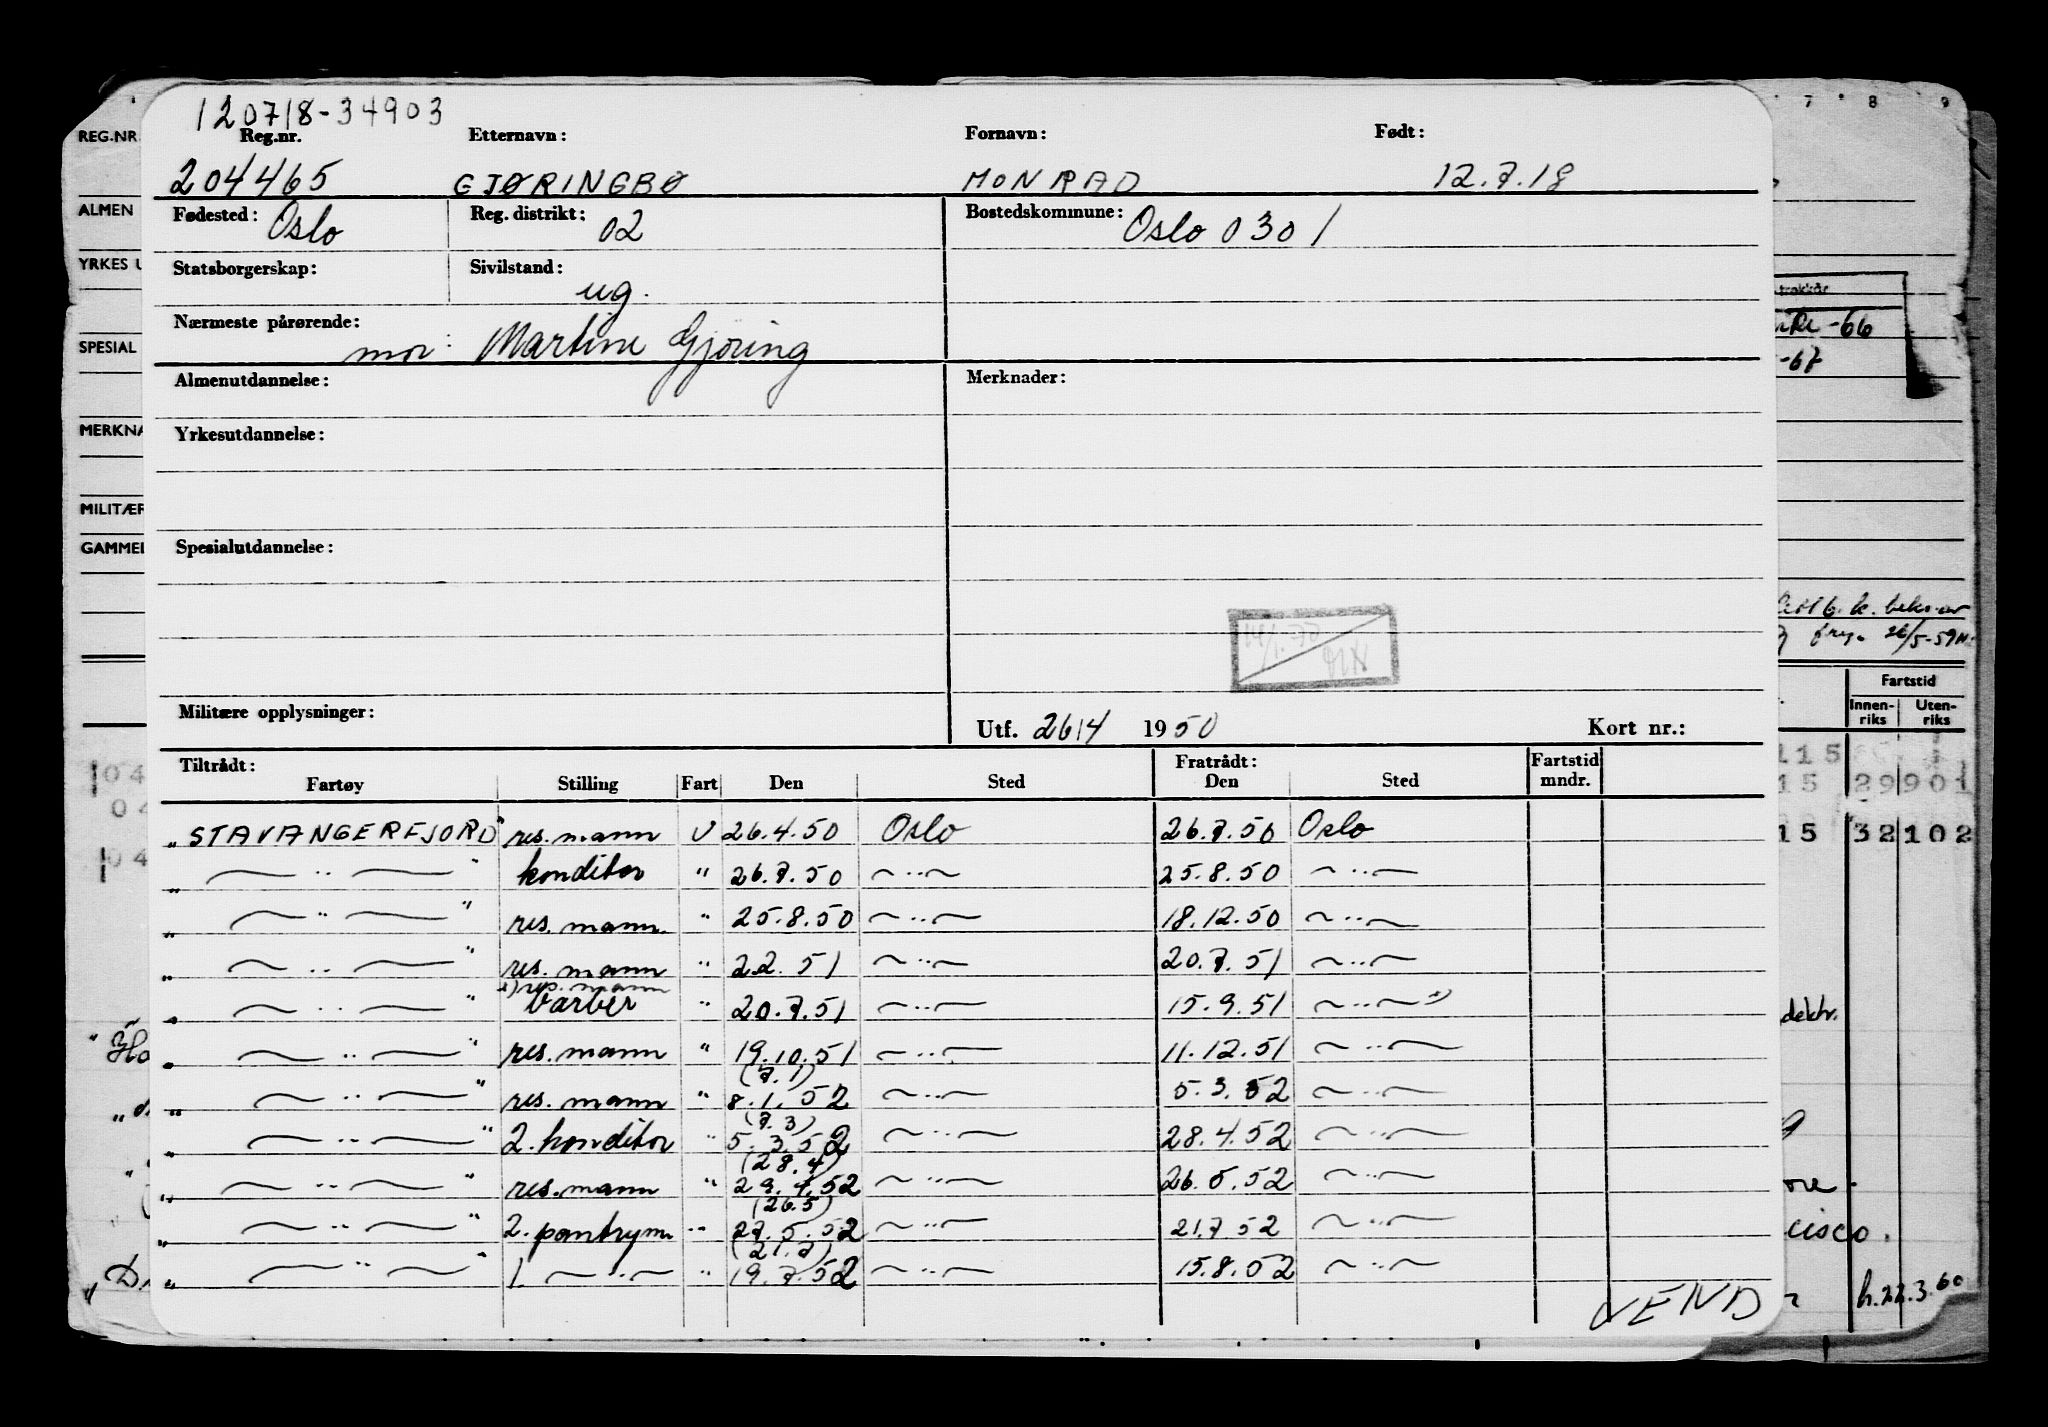 120718-34903
REG.NR. Reg.nr. Etternavn: Fornavn: Født: 7 8 9
204465 GJØRINGBØ MONRAD 12.7.18
ALMEN Fødested: Oslo Reg. distrikt: 02 Bostedskommune: Oslo 0301
YRKES U Statsborgerskap: Sivilstand: ug.
Nærmeste pårørende: mor: Martine Gjöring -66
SPESIAL -67
Almenutdannelse: Merknader:
MERKNA Yrkesutdannelse:
MILITÆR
GAMMEL Spesialutdannelse:
b. k. bekr. av
26/5-59
Fartstid
Militære opplysninger: Utf. 26/4 1950 Kort nr.: Innen-riks Uten-riks
04 Tiltrådt: Fratrådt: Fartstid 115
Fartøy Stilling Fart Den Sted Den Sted mndr. 15 29 901
04 "STAVANGERFJORD" res. mann U 26.4.50 Oslo 26.7.50 Oslo 15 32 102
04 " — " — " konditor " 26.7.50 — " — 25.8.50 — " —
" — " — " res. mann. " 25.8.50 — " — 18.12.50 — " —
" — " — " res. mann " 22. 51 — " — 20.7.51 — " —
x) res. mann
" — " — " barber " 20.7.51 — " — 15.9.51 — " — x) dektr.
" Ho " — " — " res. mann " 19.10.51 — " — 11.12.51 — " —
(7.1)
" — " — " res. mann " 8.1.52 — " — 5.3.52 — " —
(7.3)
" — " — " 2. konditor " 5.3.52 — " — 28.4.52 — " —
(28.4)
" — " — " res. mann " 29.4.52 — " — 26.5.52 — " —
(26.5)
" — " — " 2. pantrym " 27.5.52 — " — 21.7.52 — " — cisco.
(21.7)
" D. " — " — " 1. — " — " 19.7.52 — " — 15.8.52 — " —
VEND h.22.3.60